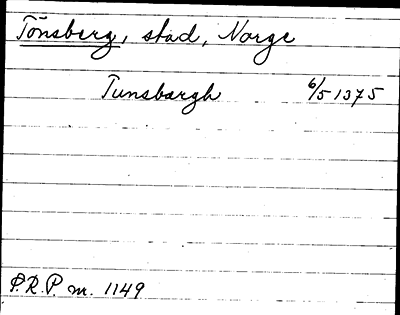 Tönsberg, stad, Norge
Tunsbærgh 6/5 1375
P.R.P. nr. 1149